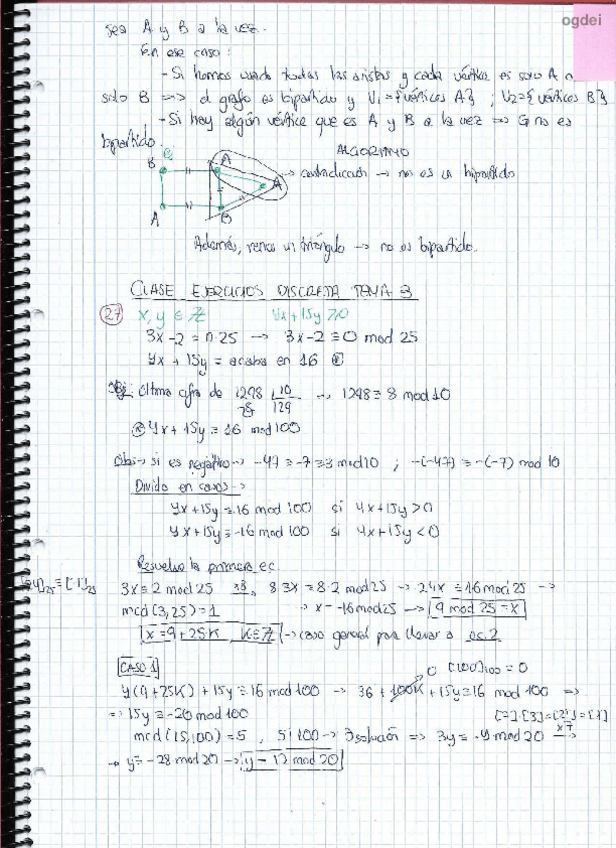 ogdei
sea A y B a la vez.
En ese caso:
- Si hemos usado todas las aristas y cada vértice es solo A o
solo B => el grafo es bipartido y V1={vértices A} ; V2={vértices B}
- Si hay algún vértice que es A y B a la vez => G no es
bipartido.
ALGORITMO
B A
A → contradicción → no es un bipartido
A B
Además, vemos un triángulo → no es bipartido.
CLASE EJERCICIOS DISCRETA TEMA 3
27 x, y ∈ Z 4x+15y ≥ 0
3x-2 = n·25 → 3x-2 ≡ 0 mod 25
4x + 15y = acaba en 16 *
Obj: última cifra de 1298 |10 → 1298 ≡ 8 mod 10
129
* 4x+15y ≡ 16 mod 100
Obs → si es negativo → -47 ≡ -7 ≡ 3 mod 10 ; -(-47) ≡ -(-7) mod 10
Divido en casos →
4x+15y ≡ 16 mod 100 si 4x+15y > 0
4x+15y ≡ -16 mod 100 si 4x+15y < 0
Resuelvo la primera ec.
[24]25 = [-1]25 3x ≡ 2 mod 25 x8 8·3x ≡ 8·2 mod 25 → 24x ≡ 16 mod 25 →
mcd(3,25)=1 → x ≡ -16 mod 25 → 9 mod 25 = x
x = 9+25K, K∈Z → caso general para llevar a ec.2
CASO 1 0 [100]100 = 0
4(9+25K) + 15y ≡ 16 mod 100 → 36 + 100K + 15y ≡ 16 mod 100 =>
=> 15y ≡ -20 mod 100 [7]·[3]=[21]=[1]
mcd(15,100) = 5, 5|100 → ∃ solución => 3y ≡ -4 mod 20 x7 →
→ y ≡ -28 mod 20 → y = 12 mod 20